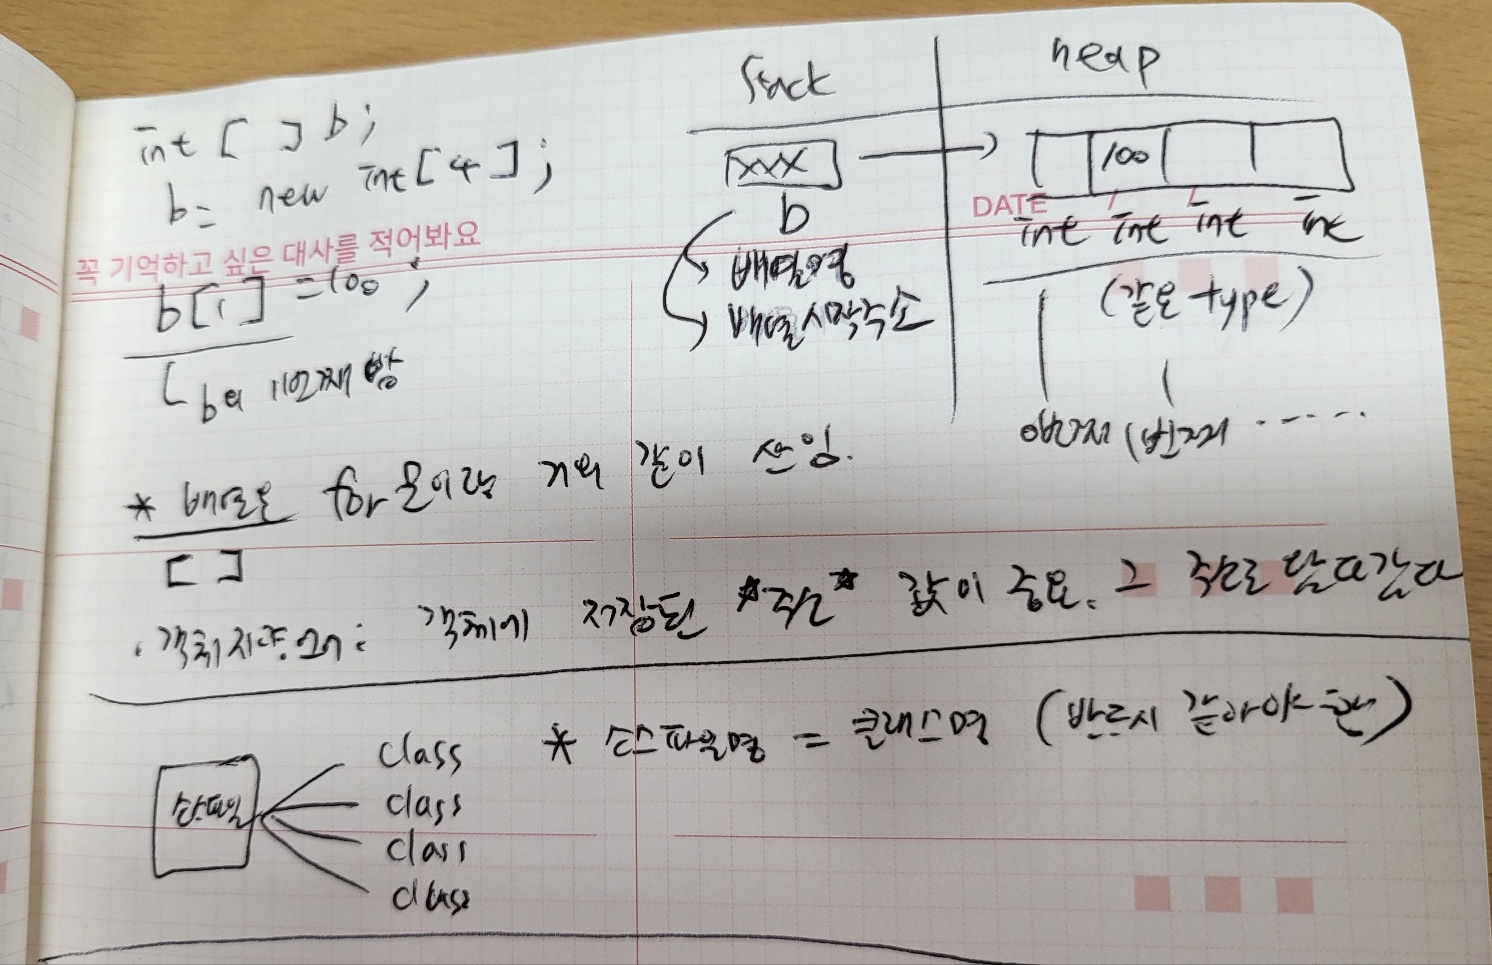 int [ ] b;
b = new int [4];
꼭 기억하고 싶은 대사를 적어봐요
b[1] = 100;
b의 1번째 방
stack
heap
xxx
100
b
DATE
int int int int
배열명
배열시작주소
(같은 type)
0번째 1번째 ......
* 배열은 for문이랑 거의 같이 쓰임.
[ ]
· 객체지향언어: 객체에 저장된 *주소* 값이 중요. 그 주소로 왔다갔다
* 소스파일명 = 클래스명 (반드시 같아야 함)
소스파일
class
class
class
class